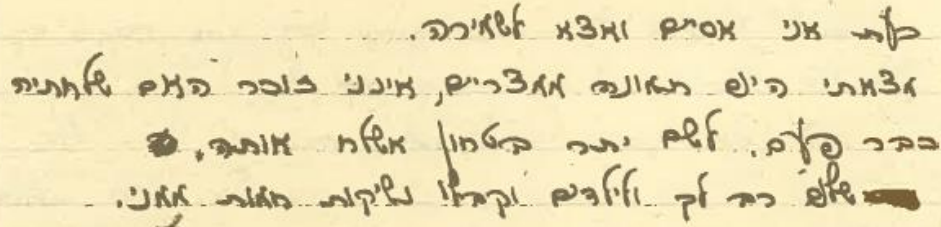 כעת אני אסיים ואצא לשמירה.
מצאתי היום תמונה ממצריים, אינני זוכר האם שלחתיה
כבר פעם. לשם יתר בטחון אשלח אותה.
שלום רב לך ולילדים וקבלו נשיקות חמות ממני.